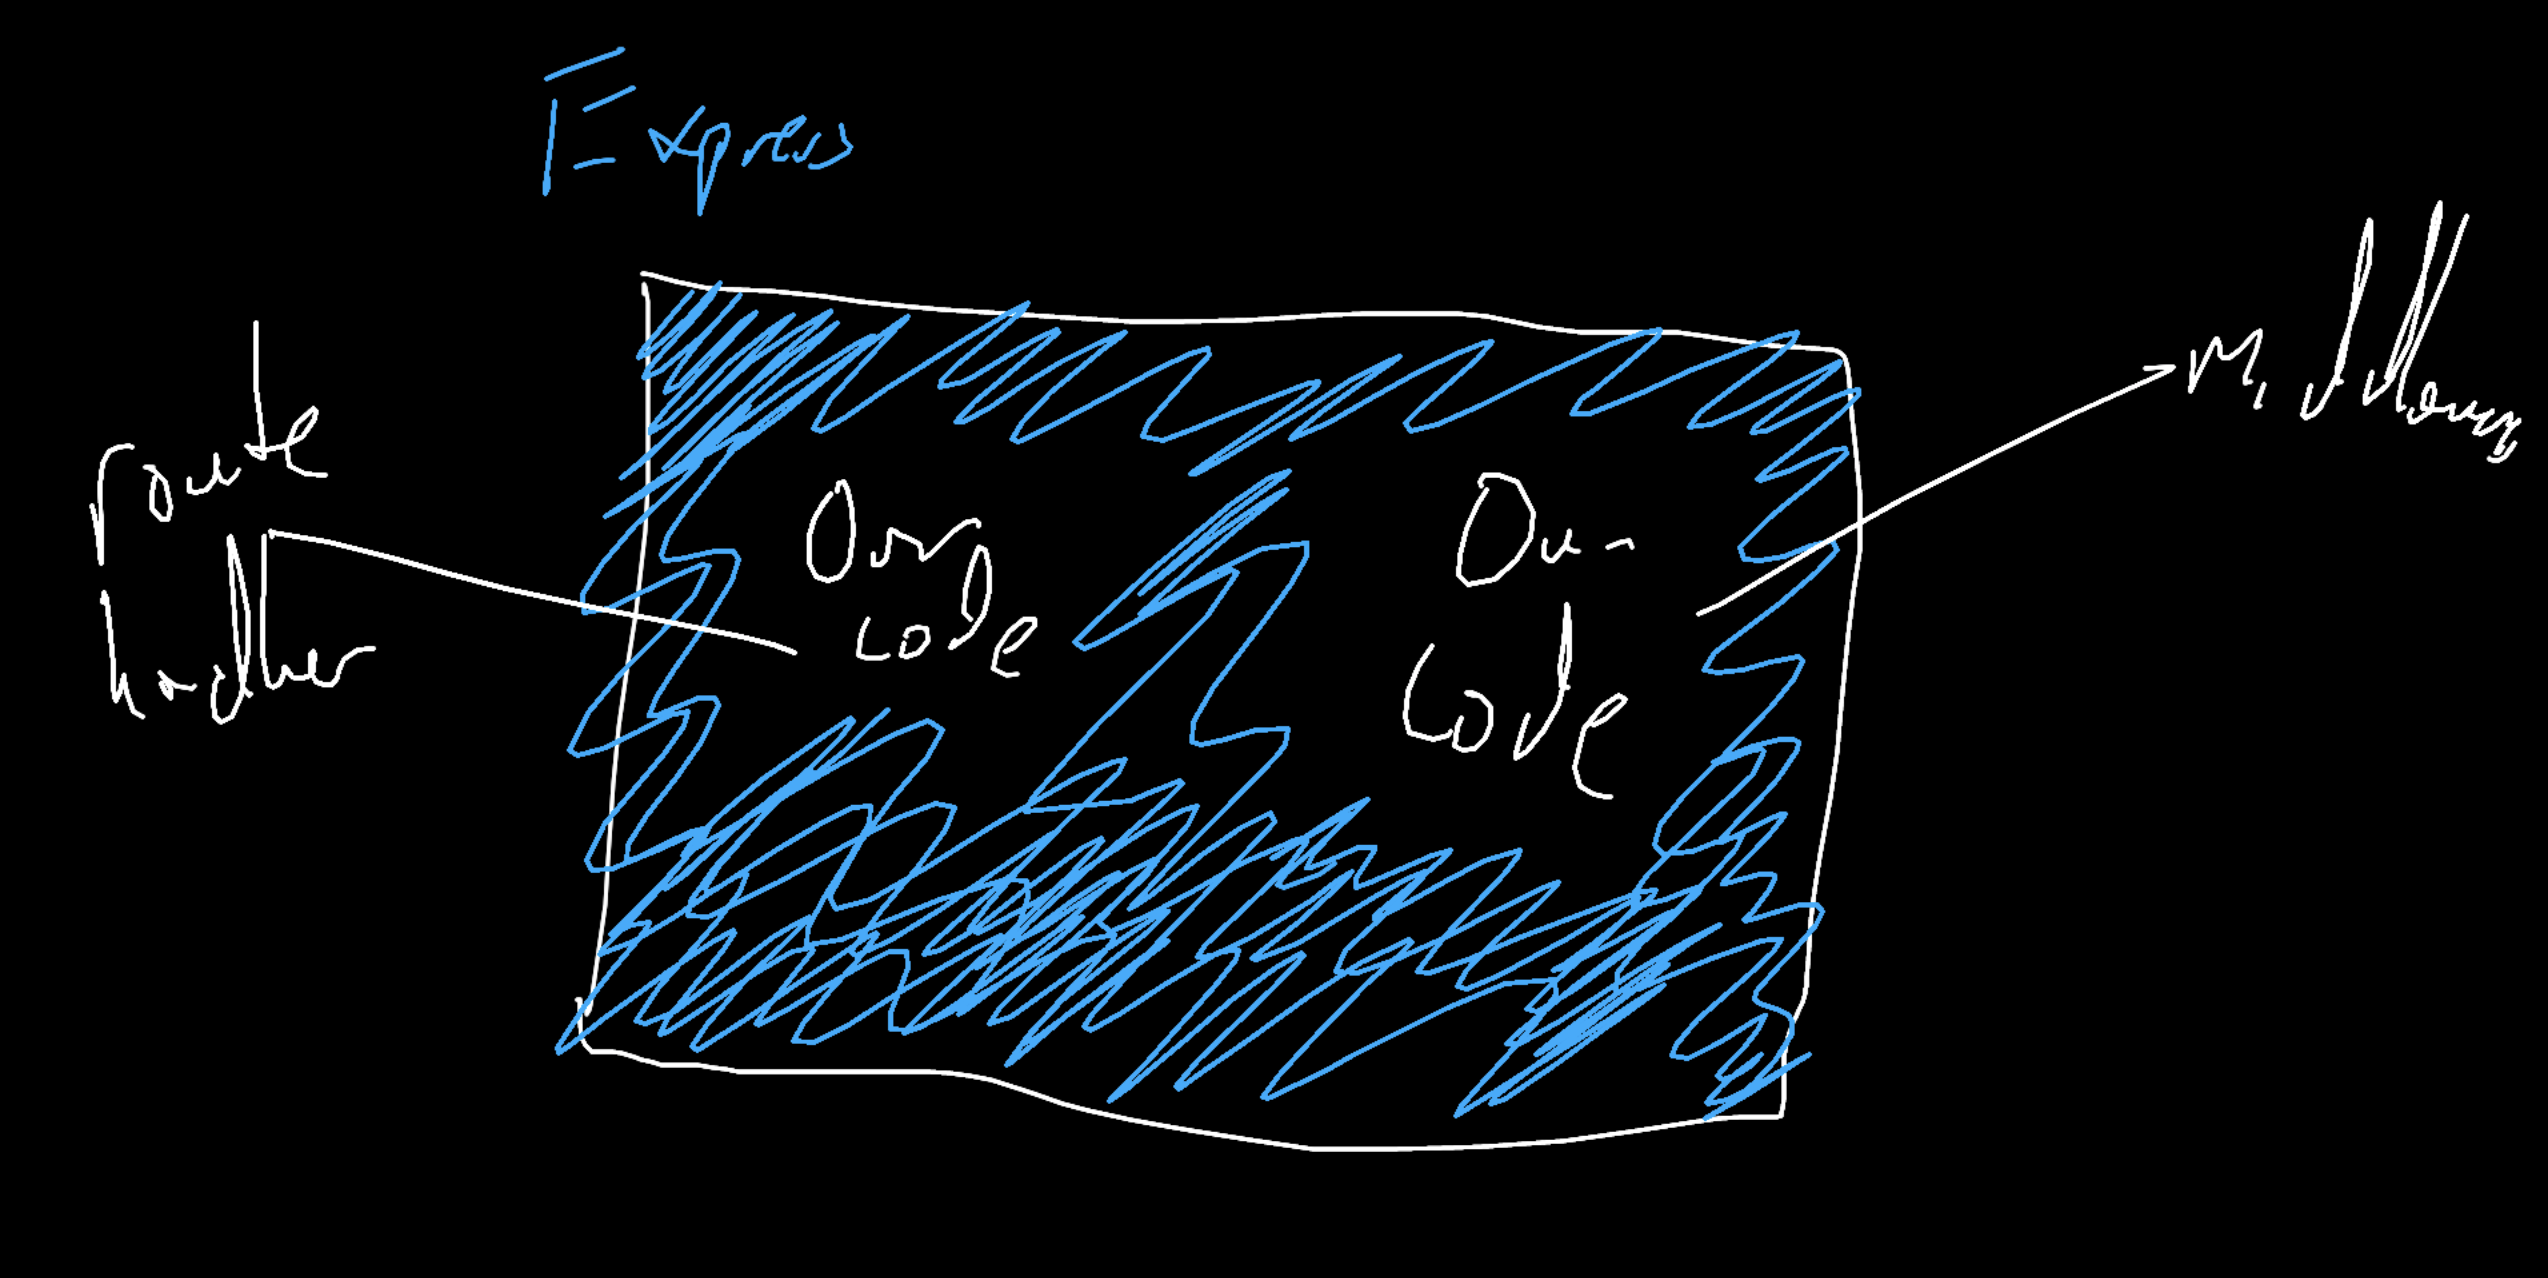 Express
route
handler
Our
code
Our
code
Middleware